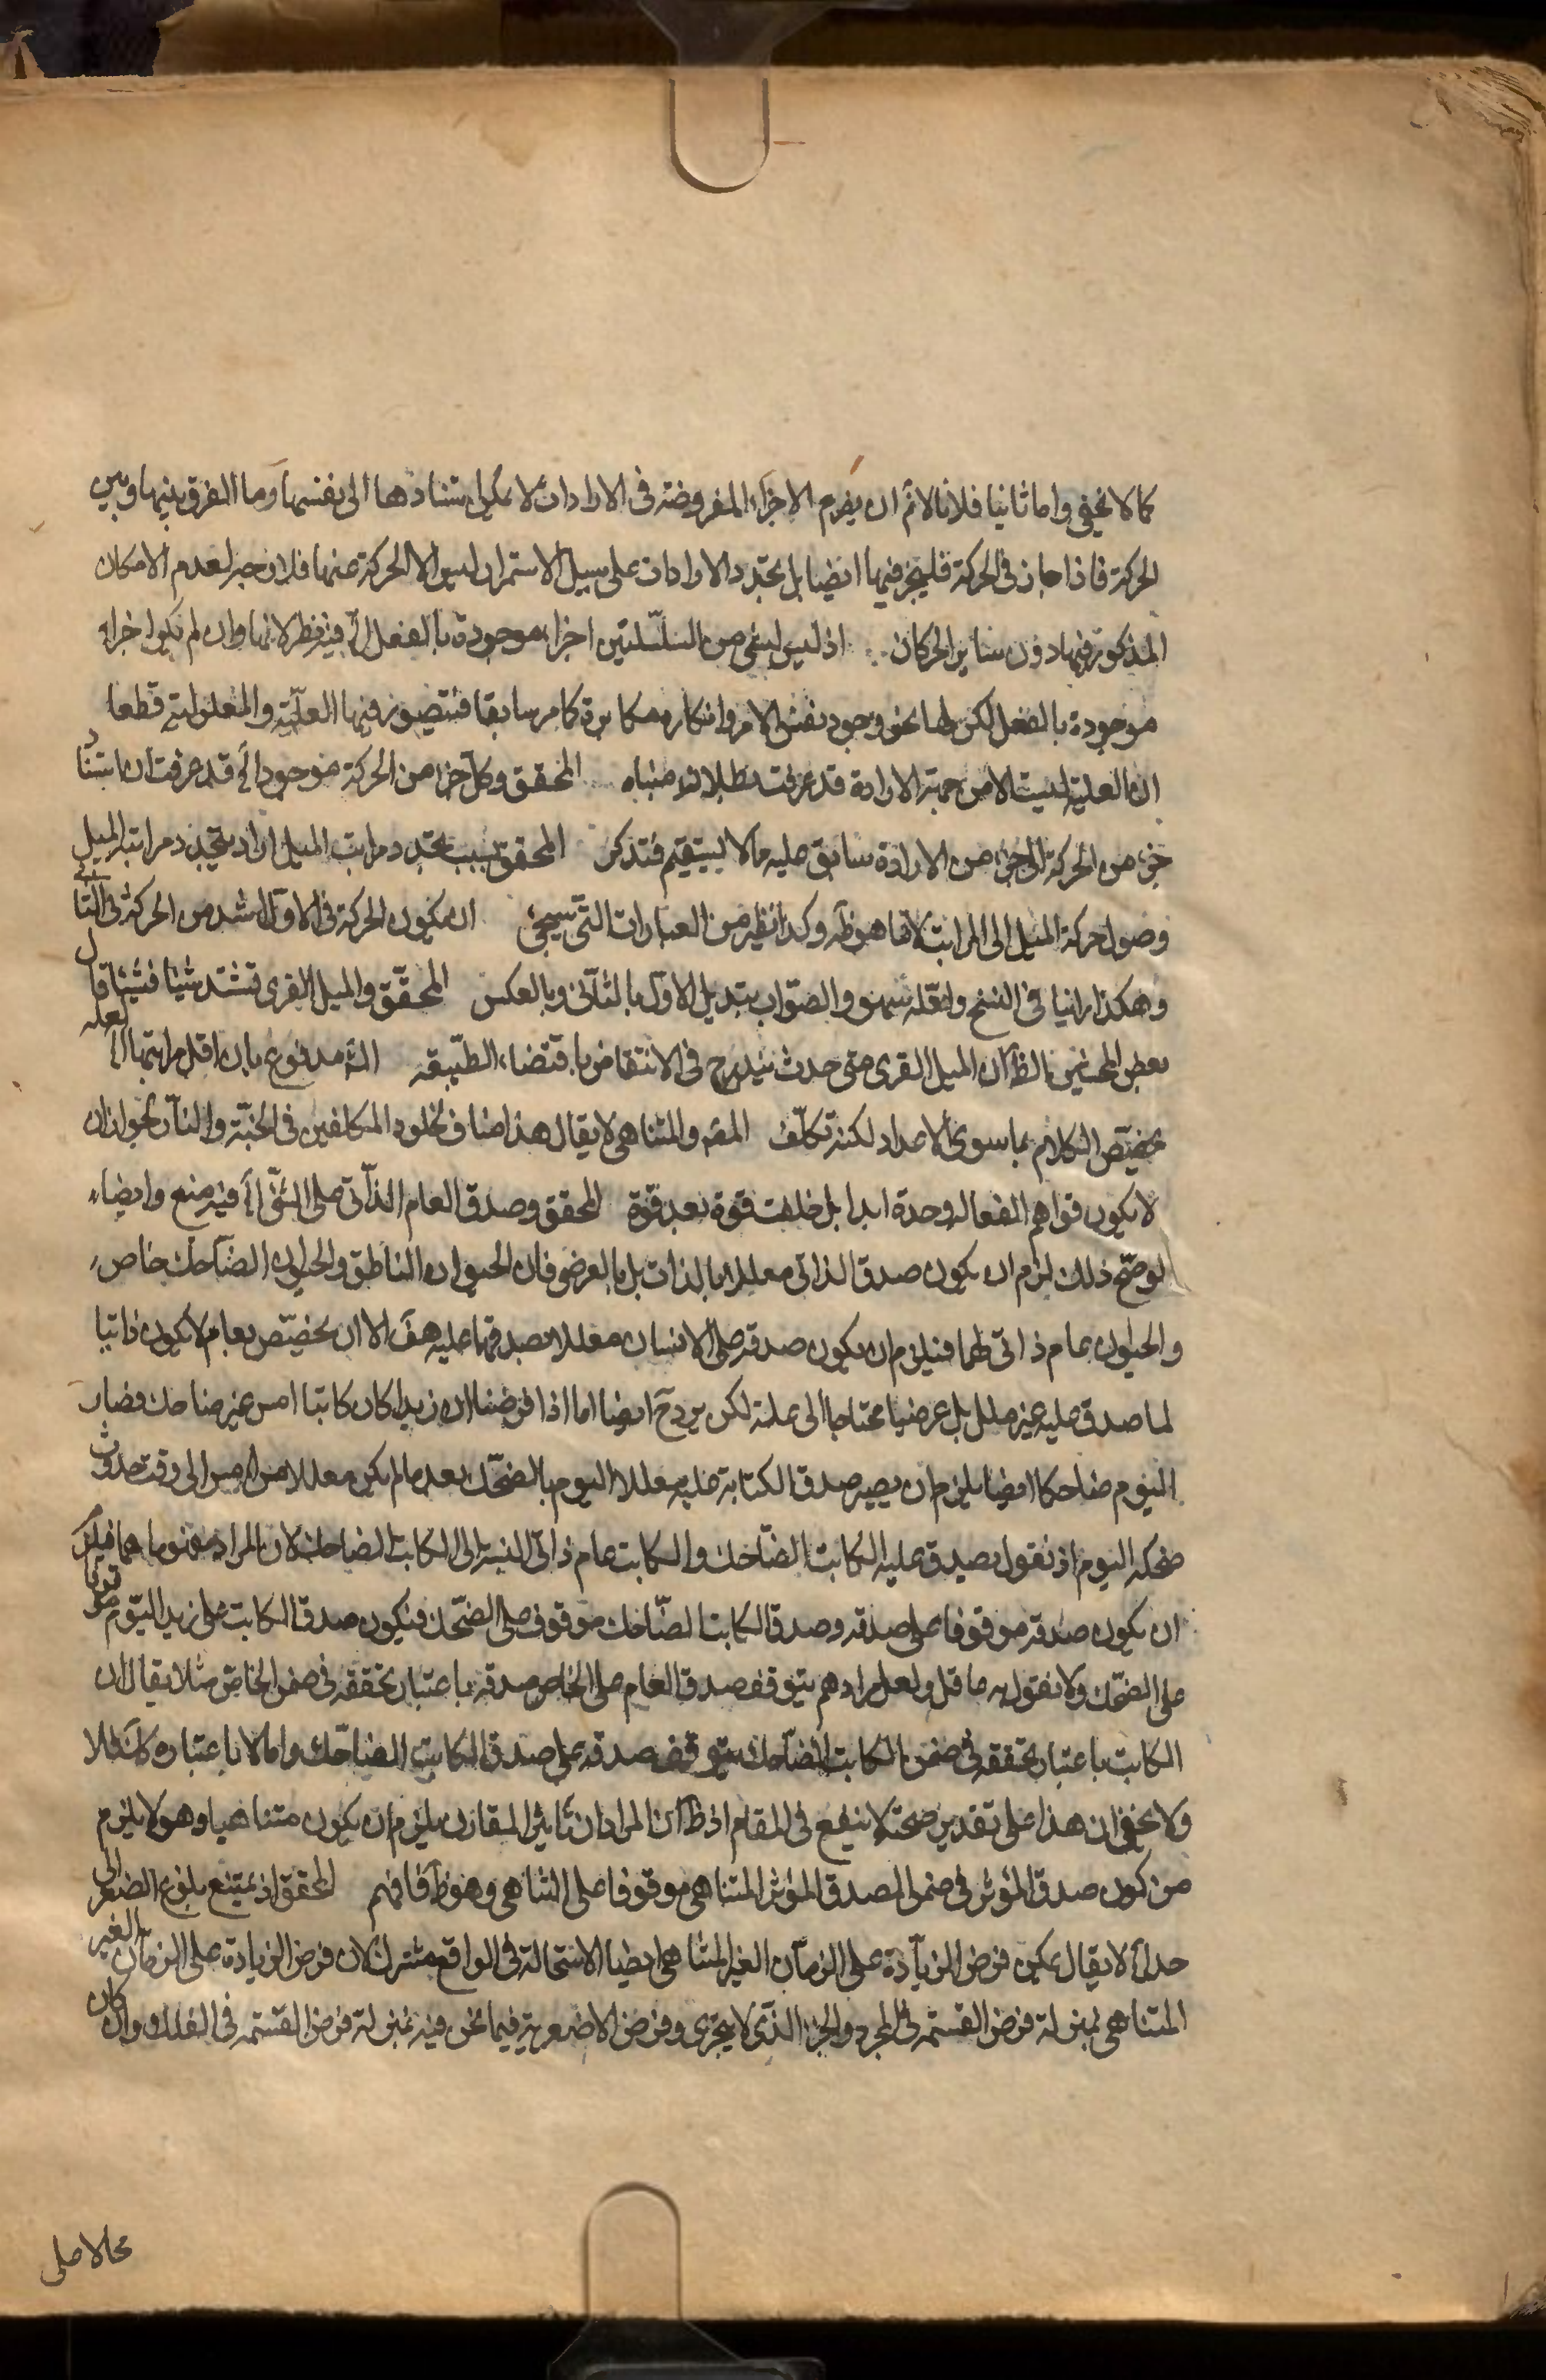 كما لا يخفى واما ثانيا فلانا لانم ان يفرم الاجزاء المفروضة فى الارادات لا يمكن استنادها الى نفسها وما الفرق بينها وبين
الحركة فاذا جاز فى الحركة فليجز فيها ايضا بل تجدد الارادات على سبيل الاستمرار ليس الا الحركة عنها فلا وجه لعدم الامكان
المذكور فيها دون سائر الحركات اذ ليس لشئ من السلسلتين اجزاء موجودة بالفعل الخ فيه نظر لانها وان لم يكن اجزاء
موجودة بالفعل لكن لها نحو وجود بنفس الامر وانكاره مكابرة كما مر سابقا فيتصور فيها العلّية والمعلولية قطعا
ان العلية ليست الا من جهة الارادة قد عرفت بطلان مبناه المحقق وكل جزء من الحركة موجود الخ قد عرفت ان استناد
جزء من الحركة الى جزء من الارادة سابق عليه مما لا يستقيم فتذكر المحقق بسبب تجدد مراتب الميل اراد بتجدد مراتب الميل
وصول حركة الميل الى المراتب لا ما هو ظه وكذا نظيره من العبارات التى سيجئ ان يكون الحركة فى الاول اشد من الحركة فى الثانى
وهكذا راينا فى النسخ ولعله سهو والصواب تبديل الاول بالثانى وبالعكس المحقق والميل القسرى تشتد شيئا فشيئا قال
بعض المحشين الظ ان الميل القسرى متى حدث يتدرج فى الانتقاض باقتضاء الطبيعة الش مدفوع بان اقل مراتبها الخ لعله
تخصيص الكلام بما سوى الاعداد لكنه تكلف المقم والمتناهى لا يقال هذا مناف لخلود المكلفين فى الجنة والنار لجواز ان
لا يكون قواهم الفعالة واحدة ابدا بل خلقت قوة بعد قوة المحقق وصدق العام الذاتى على الشئ الخ فيه منع وايضا
لو صح ذلك لزم ان يكون صدق الذاتى معللا بالذات بل بالعرضى فان الحيوان الناطق والحيوان الضاحك خاص
والحيوان عام ذاتى لهما فيلزم ان يكون صدقه على الانسان معللا بصدقهما عليه هف الا ان يخصص بعام لا يكون ذاتيا
لما صدق عليه غير معلل بل عرضيا محتاجا الى علة لكن يرد ح ايضا اما اذا فرضنا ان زيدا كان كاتبا امس غير ضاحك وصار
اليوم ضاحكا ايضا يلزم ان يصير صدق الكتابة عليه معللا اليوم بالضحك بعد ما لم يكن معللا من امس الى وقت حدوث
ضحكه اليوم اذ نقول يصدق عليه الكاتب الضاحك والكاتب عام ذاتى النسبة الى الكاتب الضاحك لان المراد مفهوما هما فيلزم
ان يكون صدقه موقوفا على صدقه وصدق الكاتب الضاحك موقوف على الضحك فيكون صدق الكاتب على زيد اليوم موقوفا
على الضحك ولا نقول به ما قل ولعل مرادهم بتوقف صدق العام على الخاص صدقه باعتبار تحققه فى ضمن الخاص مثلا يقال ان
الكاتب باعتبار تحققه فى ضمن الكاتب الضاحك يتوقف صدقه على صدق الكاتب الضاحك واما لا باعتباره كذلك فلا
ولا يخفى ان هذا على تقدير صحته لا ينفع فى المقام اذ ظ ان المراد ان تأثير المقارن يلزم ان يكون متناهيا وهو لا يلزم
من كون صدق المؤثر فى ضمن المصدق المؤثر المتناهى موقوفا على التناهى وهو ظ فافهم المحقق اذ يمتنع بلوغ الصغر الى
حد الخ لا يقال يمكن فرض الزيادة على الزمان الغير المتناهى ايضا الاستحالة فى الواقع مشترك لان فرض الزيادة على الزمان الغير
المتناهى بمنزلة فرض القسمة فى المجرد والجزء الذى لا يتجزى وفرض الاصغرية فيما نحن فيه بمنزلة فرض القسمة فى الفلك وان كان
محالا على